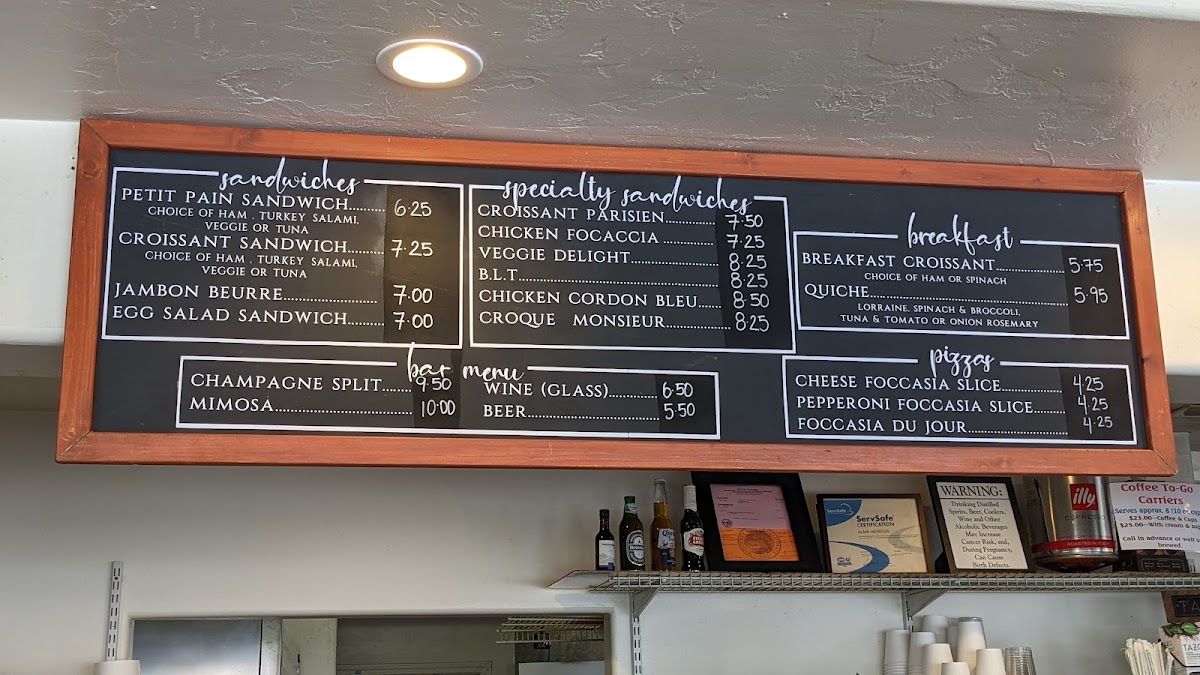 sandwiches
PETIT PAIN SANDWICH........ 6.25
CHOICE OF HAM . TURKEY SALAMI,
VEGGIE OR TUNA
CROISSANT SANDWICH........ 7.25
CHOICE OF HAM . TURKEY SALAMI,
VEGGIE OR TUNA
JAMBON BEURRE...................... 7.00
EGG SALAD SANDWICH........ 7.00
specialty sandwiches
CROISSANT PARISIEN............ 7.50
CHICKEN FOCACCIA ............ 7.25
VEGGIE DELIGHT..................... 8.25
B.L.T............................................. 8.25
CHICKEN CORDON BLEU..... 8.50
CROQUE MONSIEUR............... 8.25
breakfast
BREAKFAST CROISSANT.............. 5.75
CHOICE OF HAM OR SPINACH
QUICHE............................................ 5.95
LORRAINE, SPINACH & BROCCOLI,
TUNA & TOMATO OR ONION ROSEMARY
bar menu
CHAMPAGNE SPLIT...... 9.50
MIMOSA............................. 10.00
WINE (GLASS)............ 6.50
BEER............................. 5.50
pizzas
CHEESE FOCCASIA SLICE............. 4.25
PEPPERONI FOCCASIA SLICE...... 4.25
FOCCASIA DU JOUR..................... 4.25
ServSafe
ServSafe
CERTIFICATION
WARNING:
Drinking Distilled
Spirits, Beer, Coolers,
Wine and Other
Alcoholic Beverages
May Increase
Cancer Risk, and,
During Pregnancy,
Can Cause
Birth Defects.
illy
ESPRESSO
Coffee To-Go
Carriers
Serves approx. 8 (10 
$23.00--Coffee & Cups
$25.00--With cream &
Call in advance or wait
brewed.
TAZO